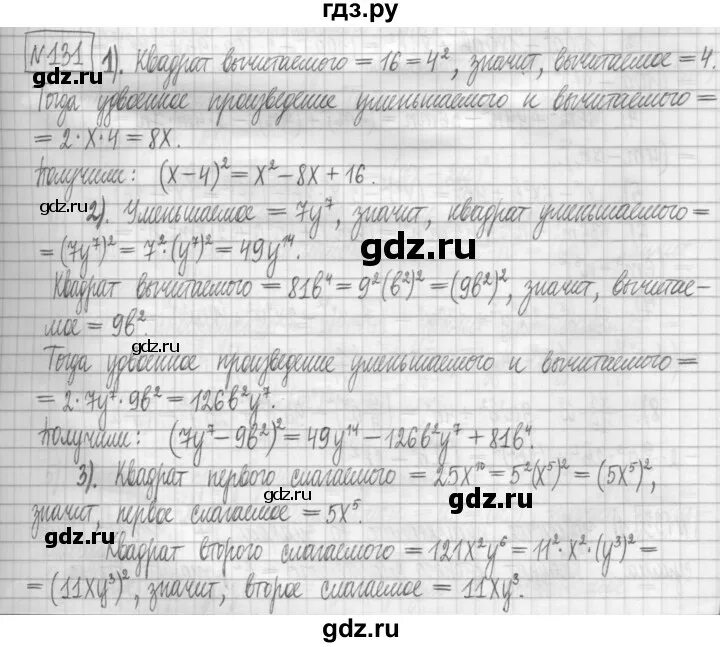 гдз.ру
№131 1). Квадрат вычитаемого = 16 = 4², значит, вычитаемое = 4.
gdz.ru
Тогда удвоенное произведение уменьшаемого и вычитаемого =
= 2·x·4 = 8x.
Получили: (x-4)² = x² - 8x + 16.
gdz.ru
2). Уменьшаемое = 7y⁷, значит, квадрат уменьшаемого =
= (7y⁷)² = 7²·(y⁷)² = 49y¹⁴.
gdz.ru
Квадрат вычитаемого = 81b⁴ = 9²(b²)² = (9b²)², значит, вычитае-
мое = 9b².
gdz.ru
Тогда удвоенное произведение уменьшаемого и вычитаемого =
= 2·7y⁷·9b² = 126b²y⁷.
Получили: (7y⁷ - 9b²)² = 49y¹⁴ - 126b²y⁷ + 81b⁴.
3). Квадрат первого слагаемого = 25x¹⁰ = 5²(x⁵)² = (5x⁵)²,
gdz.ru
gdz.ru
значит, первое слагаемое = 5x⁵.
Квадрат второго слагаемого = 121x²y⁶ = 11²·x²·(y³)² =
= (11xy³)², значит, второе слагаемое = 11xy³.
gdz.ru
gdz.ru